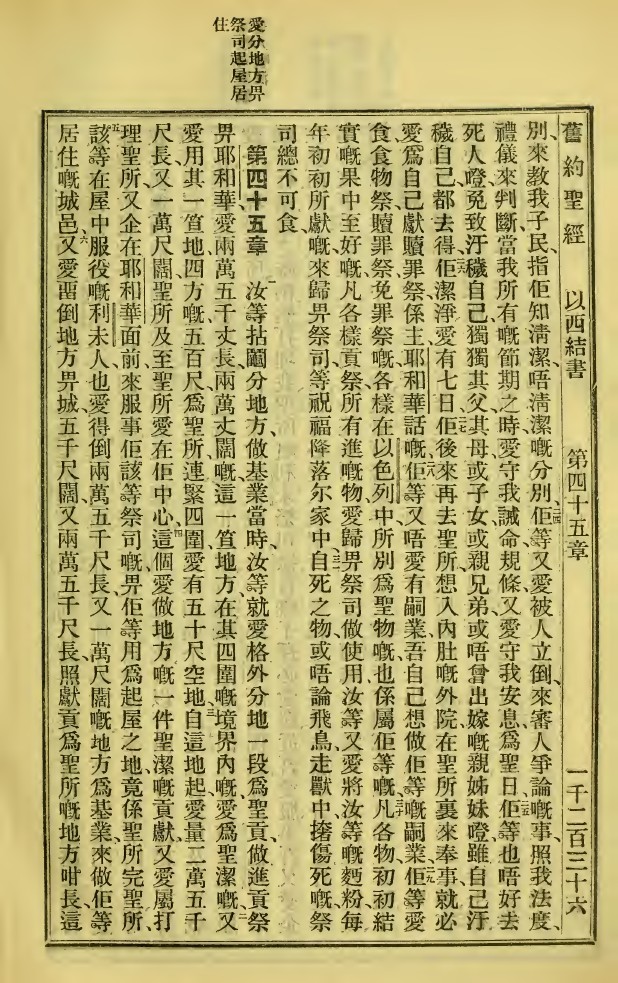 愛分地方畀
祭司起屋居
住
舊約聖經 以西結書 第四十五章 一千二百三十六
別、來教我子民、指佢知清潔唔清潔嘅分別、二四佢等又愛被人立倒、來審人爭論嘅事、照我法度、
禮儀來判斷、當我所有嘅節期之時、愛守我誡命規條、又愛守我安息爲聖日、二五佢等也唔好去
死人磴、免致汙穢自己、獨獨其父其母、或子女、或親兄弟、或唔曾出嫁嘅親姊妹磴、雖自己汙
穢自己、都去得、二六佢潔淨、愛有七日、二七佢後來再去聖所、想入內肚嘅外院、在聖所裏來奉事、就必
愛爲自己獻贖罪祭、係主耶和華話嘅、二八佢等又唔愛有嗣業、吾自己想做佢等嘅嗣業、二九佢等愛
食食物祭、贖罪祭、免罪祭嘅、各樣在以色列中所別爲聖物嘅、也係屬佢等嘅、三十凡各物初初結
實嘅果中至好嘅、凡各樣貢祭、所有進嘅物、愛歸畀祭司做使用、汝等又愛將汝等嘅麪粉、每
年初初所獻嘅、來歸畀祭司等、祝福降落尔家中、三一自死之物、或唔論飛鳥走獸中撦傷死嘅、祭
司總不可食、
第四十五章 一汝等拈鬮分地方、做基業當時、汝等就愛格外分地一段爲聖貢、做進貢祭
畀耶和華、愛兩萬五千丈長、兩萬丈闊嘅、這一笪地方、在其四圍嘅境界內嘅、愛爲聖潔嘅、二又
愛用其一笪地、四方嘅五百尺、爲聖所、連緊四圍愛有五十尺空地、三自這地起、愛量二萬五千
尺長、又一萬尺闊、聖所及至聖所、愛在佢中心、四這個愛做地方嘅一件聖潔嘅貢獻、又愛屬打
理聖所、又企在耶和華面前來服事佢該等祭司嘅、畀佢等用爲起屋之地、竟係聖所完聖所、
五該等在屋中服役嘅利未人、也愛得倒兩萬五千尺長、又一萬尺闊嘅地方爲基業、來做佢等
居住嘅城邑、六又愛畱倒地方畀城、五千尺闊、又兩萬五千尺長、照獻貢爲聖所嘅地方咁長、這